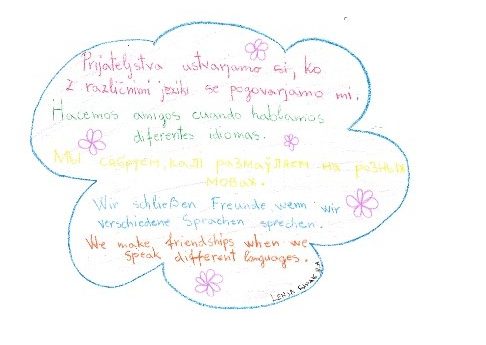 Prijateljstva ustvarjamo si, ko
z različnimi jeziki se pogovarjamo mi.
Hacemos amigos cuando hablamos
diferentes idiomas.
Мы сябруем, калі размаўляем на розных
мовах.
Wir schließen Freunde wenn wir
verschiedene Sprachen sprechen.
We make friendships when we
speak different languages.